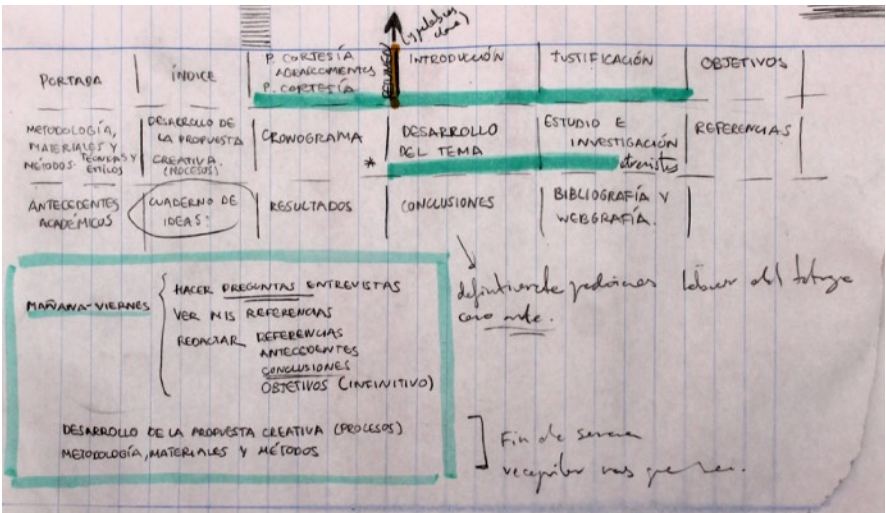 (y palabras
clave)
RESUMEN
PORTADA
ÍNDICE
P. CORTESÍA
AGRADECIMIENTOS
P. CORTESÍA
INTRODUCCIÓN
JUSTIFICACIÓN
OBJETIVOS
METODOLOGÍA,
MATERIALES Y
MÉTODOS. TÉCNICAS Y
ESTILOS
DESARROLLO DE
LA PROPUESTA
CREATIVA.
(PROCESOS)
CRONOGRAMA
*
DESARROLLO
DEL TEMA
ESTUDIO E
INVESTIGACIÓN
REFERENCIAS
ANTECEDENTES
ACADÉMICOS
CUADERNO DE
IDEAS:
RESULTADOS
CONCLUSIONES
BIBLIOGRAFÍA Y
WEBGRAFÍA.
MAÑANA-VIERNES
HACER PREGUNTAS ENTREVISTAS
VER MIS REFERENCIAS
REDACTAR REFERENCIAS
ANTECEDENTES
CONCLUSIONES
OBJETIVOS (INFINITIVO)
DESARROLLO DE LA PROPUESTA CREATIVA (PROCESOS)
METODOLOGÍA, MATERIALES Y MÉTODOS
del tatuaje
como arte.
Fin de semana